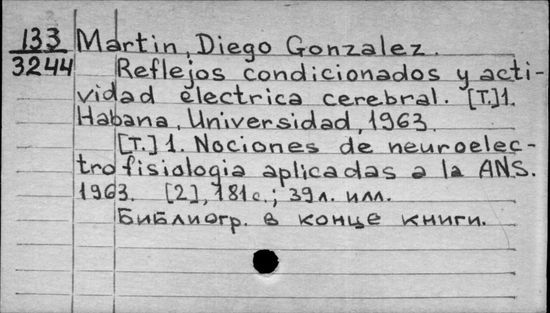 133 Martin, Diego Gonzalez.
3244 Reflejos condicionados y acti-
vidad electrica cerebral. [T.]1.
Habana, Universidad, 1963.
[T.] 1. Nociones de neuroelec-
trofisiologia aplicadas a la ANS.
1963. [2], 181 с.; 39 л. илл.
Библиогр. в конце книги.